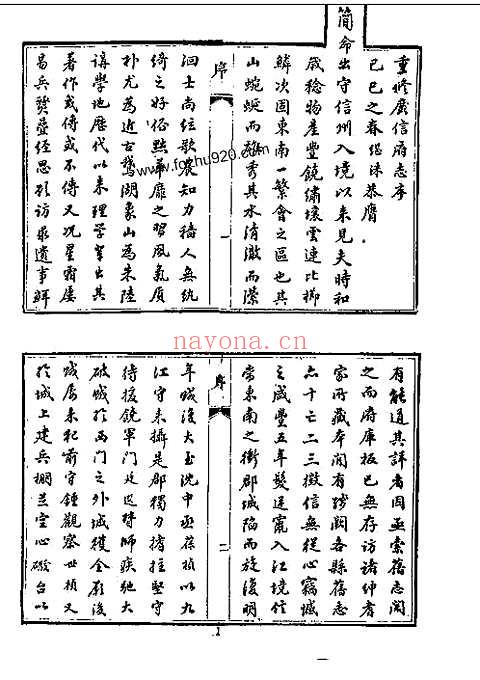 重修廣信府志序
己巳之春繼洙恭膺
簡命出守信州入境以來見夫時和
歲稔物產豐饒繡壤雲連比櫛
鱗次固東南一繁會之區也其
山蜿蜒而雄秀其水清澈而瀠
序
一
洄士尚絃歌農知力穡人無紈
綺之好俗黜華靡之習風氣質
朴尤為近古鵝湖象山為朱陸
講學地歷代以來理學輩出其
著作或傳或不傳又況星霜屢
易兵燹疊經思欲訪求遺事鮮
www.foshu920.com
nayona.cn
有能通其詳者因亟索舊志閱
之而府庫板已無存訪諸紳耆
家所藏本間有殘闕各縣舊志
亦十亡二三徵信無從心竊慽
之咸豐五年髮逆竄入江境信
當東南之衝郡城陷而旋復明
序
二
年城後大玉沈中丞葆楨以九
江守來攝是郡獨力撐拄堅守
待援饒軍門廷選督師疾馳大
破賊於西門之外城獲全厥後
賊屢來犯前守鍾觀察世楨又
於城上建兵棚並空心礮台以
1